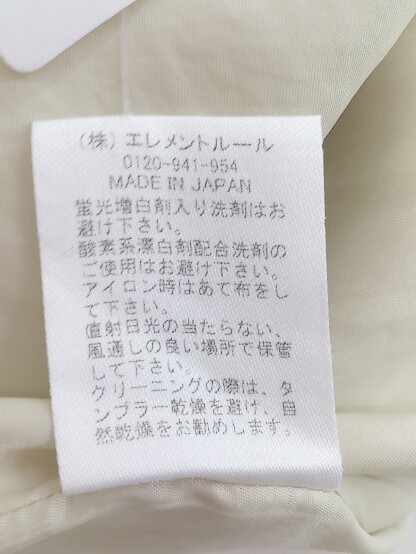 (株)エレメントルール
0120-941-954
MADE IN JAPAN
蛍光増白剤入り洗剤はお
避け下さい。
酸素系漂白剤配合洗剤の
ご使用はお避け下さい。
アイロン時はあて布をし
て下さい。
直射日光の当たらない、
風通しの良い場所で保管
して下さい。
クリーニングの際は、タ
ンブラー乾燥を避け、自
然乾燥をお勧めします。